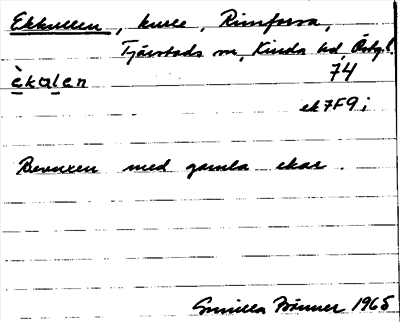 Ekkullen, kulle, Rimforsa,
Tjärstads sn, Kinda hd, Östgl.
èkalen 74
ek7F9;
Bevuxen med gamla ekar.
Gunilla Bonner 1965